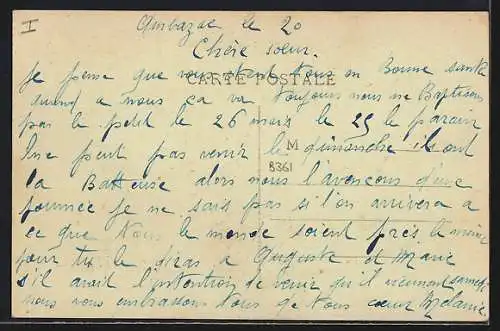 I
Ambazac le 20
Chère soeur.
Je pense que vous etent tous en Bonne santé
CARTE POSTALE
quand a nous ça va toujours nous ne Baptisons
pas le petit le 26 mais le 25 le parain
ne peut pas venir le dimanche ils ont
M
8361
la Batteuse alors nous l'avençons d'une
journée je ne sais pas si l'on arrivera a
ce que tous le monde soient près le
pour tu le diras a Auguste et Marie
s'il avait l'intention de venir qu'il viennent samedi
nous vous embrassons tous de tous coeur Melanie